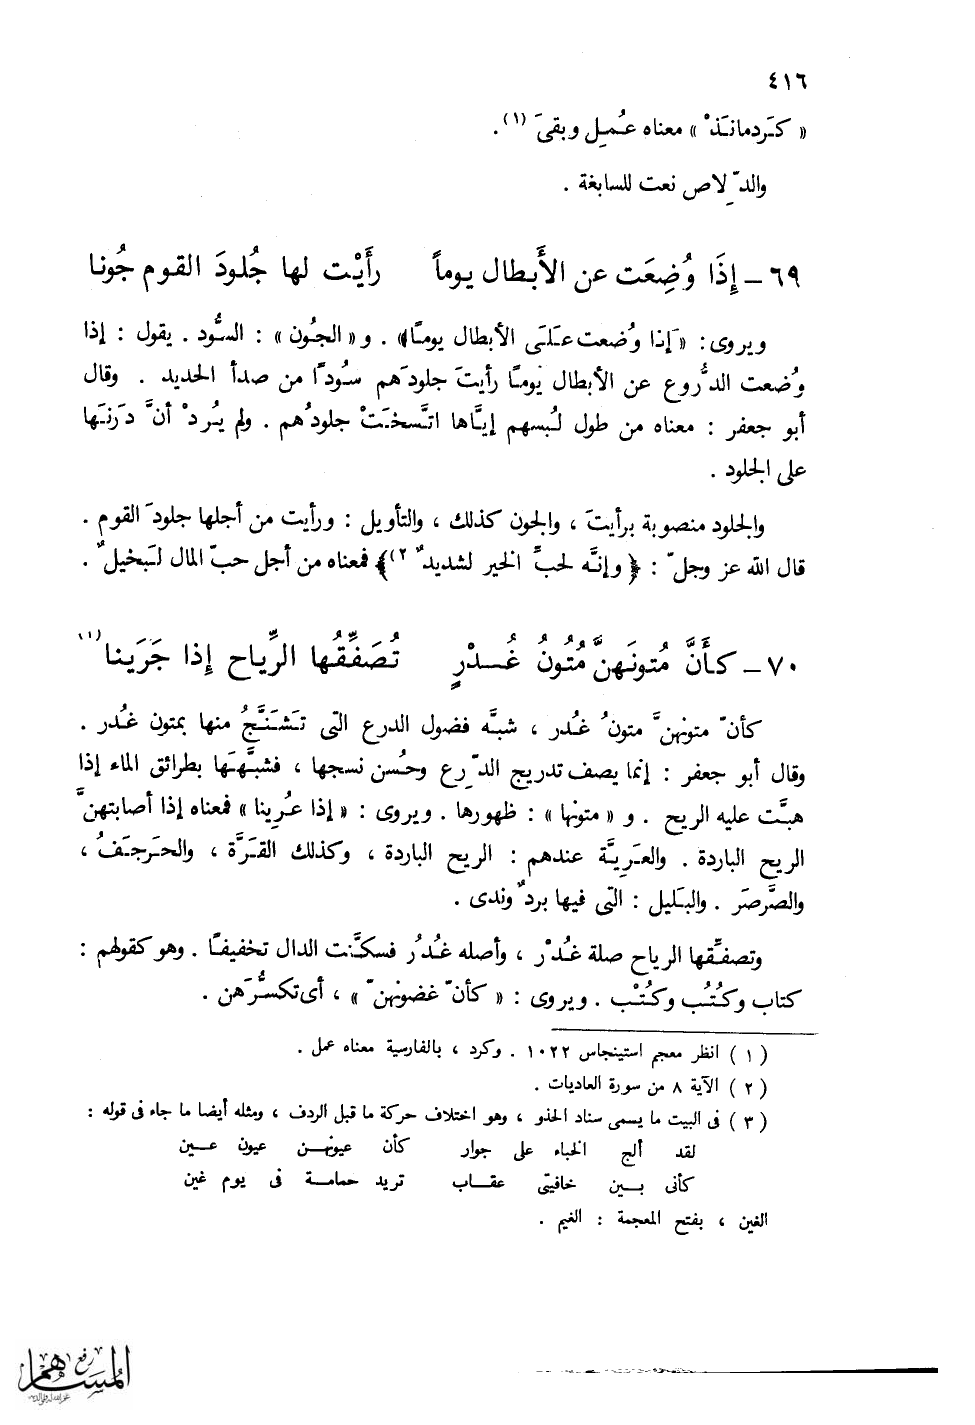 ٤١٦
« كَردمانَذْ » معناه عُمِل وبقىَ (١).
والدِّلاص نعت للسابغة .
٦٩ – إِذَا وُضِعَت عن الأَبطال يوماً رأَيْت لها جُلودَ القوم جُونا
ويروى : « إذا وُضعت عَلَى الأبطال يومًا » . و « الجُون » : السُّود . يقول : إذا
وُضعت الدُّروع عن الأبطال يومًا رأيتَ جلودَهم سُودًا من صدأ الحديد . وقال
أبو جعفر : معناه من طول لُبسهم إيَّاها اتَّسختْ جلودُهم . ولم يُردْ أنَّ دَرنَها
على الجلود .
والجلود منصوبة برأيتَ ، والجون كذلك ، والتأويل : ورأيت من أجلها جلودَ القوم .
قال الله عز وجلّ : ﴿ وإنَّه لحبِّ الخير لشديدٌ ٢)﴾ فمعناه من أجل حبّ المال لَبخيلٌ .
٧٠ – كأَنَّ مُتونَهنَّ مُتُونُ غُدْرٍ تُصَفِّقُها الرِّياح إِذا جَرَينا (١)
كأنّ متونهنَّ متونُ غُدر ، شبَّه فضول الدرع التى تَشَنَّجُ منها بمتون غُدر .
وقال أبو جعفر : إنما يصف تدريج الدّرع وحُسن نسجها ، فشبَّهَها بطرائق الماء إذا
هبَّت عليه الريح . و « متونها » : ظهورها . ويروى : « إذا عُرِينا » فمعناه إذا أصابتهنَّ
الريح الباردة . والعَرِيَّة عندهم : الريح الباردة ، وكذلك القَرَّة ، والحَرجَفُ ،
والصَّرصَر . والبَليل : التى فيها بردٌ وندى .
وتصفِّقها الرياح صلة غُدْر ، وأصله غُدُر فسكَّنت الدال تخفيفًا . وهو كقولهم :
كتاب وكُتُب وكُتْب . ويروى : « كأنّ غضونهنّ » ، أى تكسُّرَهن .
( ١ ) انظر معجم استينجاس ١٠٢٢ . وكرد ، بالفارسية معناه عمل .
( ٢ ) الآية ٨ من سورة العاديات .
( ٣ ) فى البيت ما يسمى سناد الحذو ، وهو اختلاف حركة ما قبل الردف ، ومثله أيضا ما جاء فى قوله :
لقد ألج الخباء على جوار كأن عيونهن عيون عين
كأنى بين خافيتى عقاب تريد حمامة فى يوم غين
الغين ، بفتح المعجمة : الغيم .
رفع
المساهم